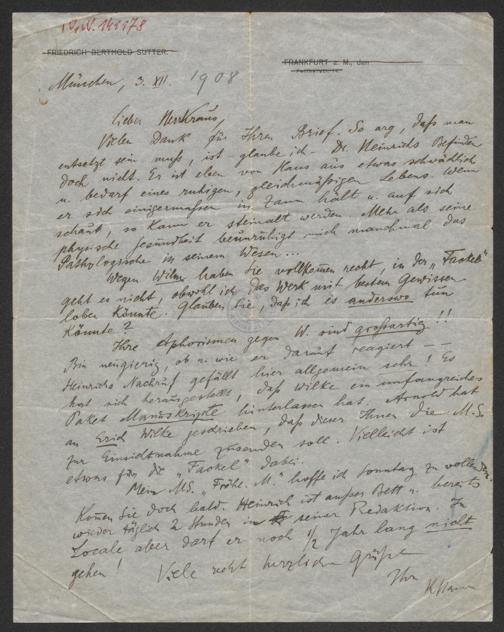 I.N. 149378
FRIEDRICH BERTHOLD SUTTER.
FRANKFURT a. M., den
München, 3. XII. 1908
Lieber Herr Kraus,
Vielen Dank für Ihren Brief. So arg, dass man
entsetzt sein muss, ist – glaube ich – Dr. Heinrichs Befinden
doch nicht. Er ist eben von Haus aus etwas schwächlich
u. bedarf eines ruhigen, gleichmässigen Lebens. Wenn
er sich einigermassen in Zaum hält u. auf sich
schaut, so kann er steinalt werden. Mehr als seine
physische Gesundheit beunruhigt mich manchmal das
Pathologische in seinem Wesen...
Wegen Wilke haben Sie vollkommen recht, in der „Fackel"
geht es nicht, obwohl ich das Werk mit bestem Gewissen
loben könnte. Glauben Sie, dass ich es anderswo tun
könnte?
Ihre Aphorismen gegen W. sind grossartig!!
Bin neugierig, ob u. wie er darauf reagiert – –
Heinrichs Nachruf gefällt hier allgemein sehr! Es
hat sich herausgestellt, dass Wilke ein umfangreiches
Paket Manuskripte hinterlassen hat. Arnold hat
an Erich Wilke geschrieben, dass dieser Ihnen die M.S.
zur Einsichtnahme zusenden soll. Vielleicht ist
etwas für die „Fackel" dabei.
Mein M.S. „Fröhl. M." hoffe ich Sonntag zu vollenden.
Kommen Sie doch bald. Heinrich ist ausser Bett u. bereits
wieder täglich 2 Stunden in seiner Redaktion. In
Locale aber darf er noch 1/2 Jahr lang nicht
gehen!
Viele recht herzliche Grüsse
Ihr